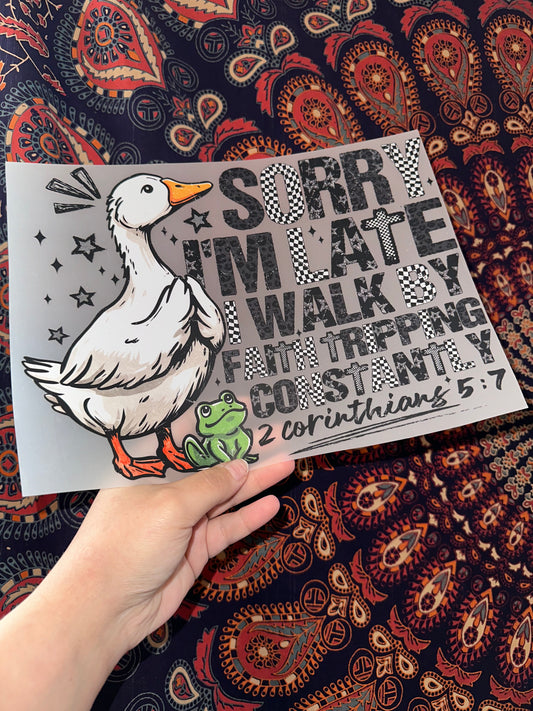 SORRY
I'M LATE
I WALK BY
FAITH TRIPPING
CONSTANTLY
2 corinthians 5:7